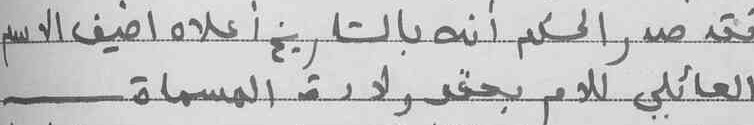 فقد صدر الحكم أنه بالتاريخ أعلاه اضيف الاسم
العائلي للام بعقد ولادة المسماة